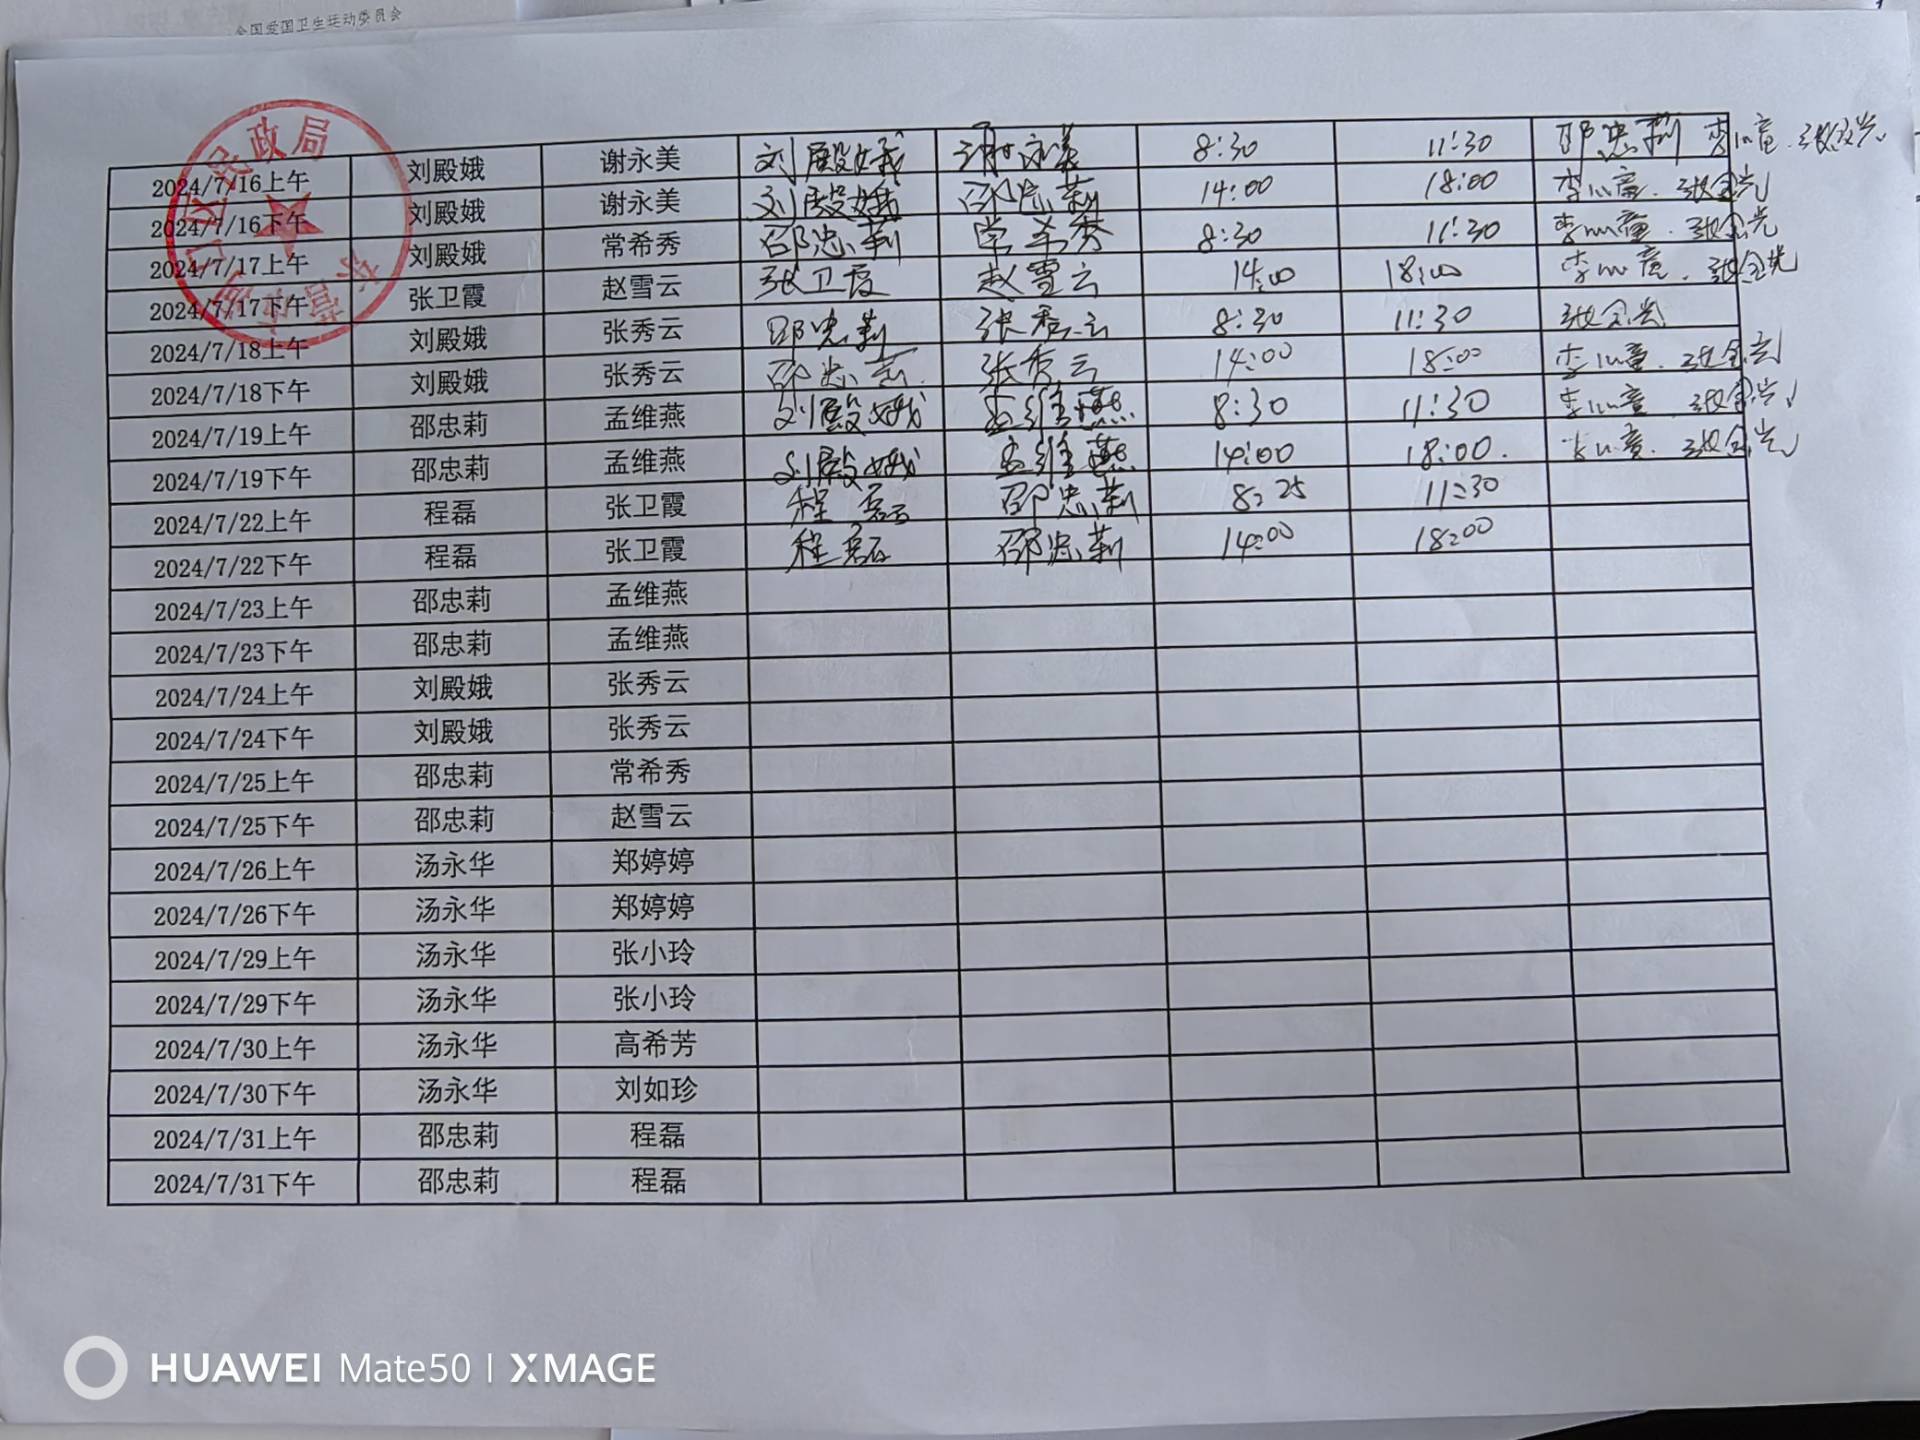 全国爱国卫生运动委员会
民政局
2024/7/16上午 刘殿娥 谢永美 刘殿娥 谢永美 8:30 11:30 邵忠莉 李心童.
2024/7/16下午 刘殿娥 谢永美 刘殿娥 邵忠莉 14:00 18:00 李心童. 张金兴
2024/7/17上午 刘殿娥 常希秀 邵忠莉 常希秀 8:30 11:30 李心童. 张金兴
2024/7/17下午 张卫霞 赵雪云 张卫霞 赵雪云 14:00 18:00 李心童. 张金兴
2024/7/18上午 刘殿娥 张秀云 邵忠莉 张秀云 8:30 11:30 张金兴
2024/7/18下午 刘殿娥 张秀云 邵忠莉 张秀云 14:00 18:00 李心童. 张金兴
2024/7/19上午 邵忠莉 孟维燕 刘殿娥 孟维燕 8:30 11:30 李心童. 张金兴
2024/7/19下午 邵忠莉 孟维燕 刘殿娥 孟维燕 14:00 18:00. 李心童. 张金兴
2024/7/22上午 程磊 张卫霞 程磊 邵忠莉 8:25 11:30
2024/7/22下午 程磊 张卫霞 程磊 邵忠莉 14:00 18:00
2024/7/23上午 邵忠莉 孟维燕
2024/7/23下午 邵忠莉 孟维燕
2024/7/24上午 刘殿娥 张秀云
2024/7/24下午 刘殿娥 张秀云
2024/7/25上午 邵忠莉 常希秀
2024/7/25下午 邵忠莉 赵雪云
2024/7/26上午 汤永华 郑婷婷
2024/7/26下午 汤永华 郑婷婷
2024/7/29上午 汤永华 张小玲
2024/7/29下午 汤永华 张小玲
2024/7/30上午 汤永华 高希芳
2024/7/30下午 汤永华 刘如珍
2024/7/31上午 邵忠莉 程磊
2024/7/31下午 邵忠莉 程磊
HUAWEI Mate50 | XMAGE